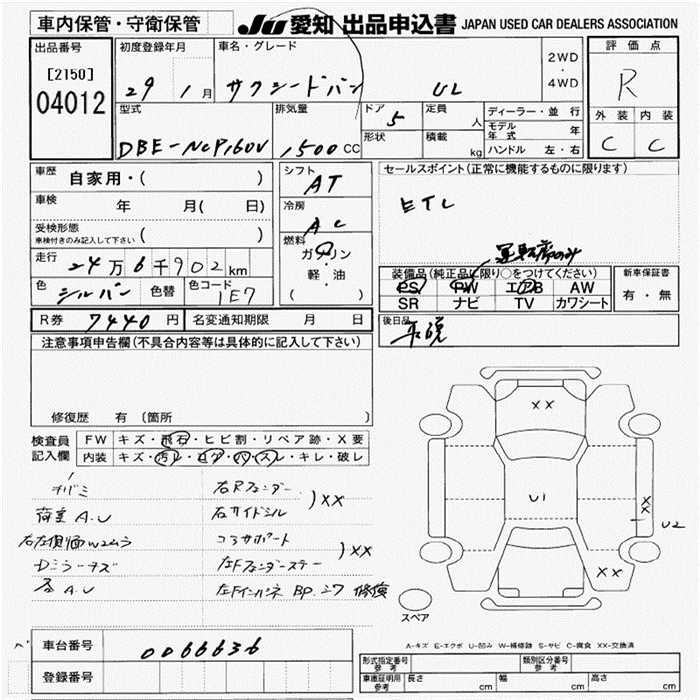 車内保管・守衛保管
JU 愛知 出品申込書 JAPAN USED CAR DEALERS ASSOCIATION
出品番号 初度登録年月 車名・グレード 2WD ・ 4WD 評価点
[2150] 29 1月 サクシードバン UL R
04012
型式 排気量 ドア 5 定員 人 ディーラー・並行 外装 内装
DBE-NCP160V 1500 CC 形状 積載 kg モデル年式 年 C C
ハンドル 左・右
車歴 自家用・( ) シフト AT セールスポイント(正常に機能するものに限ります)
車検 年 月( 日) 冷房 AC ETC
受検形態 車検付きのみ記入して下さい ( ) 燃料 ガソリン 運転席のみ
走行 24万6千902km 軽・油 装備品(純正品に限り○をつけてください) 新車保証書
色 シルバー 色替 色コード 1E7 ( ) PS PW エアB AW 有・無
SR ナビ TV カワシート
R券 7440円 名変通知期限 月 日 後日品
注意事項申告欄(不具合内容等は具体的に記入して下さい)
修復歴 有 〔箇所 〕
検査員記入欄 FW キズ・飛石・ヒビ割・リペア跡・X要
内装 キズ・汚レ・コゲ・ハズレ・キレ・破レ
荷室 A.U 右サイドシル )XX
コアサポート )XX
A.U BP.
XX
U1
XX
U2
XX
スペア
A-キズ E-エクボ U-凹み W-補修跡 S-サビ C-腐食 XX-交換済
車台番号 0066636
登録番号
形式指定番号 参考 類別区分番号 参考
車庫証明用 参考 長さ cm 幅 cm 高さ cm